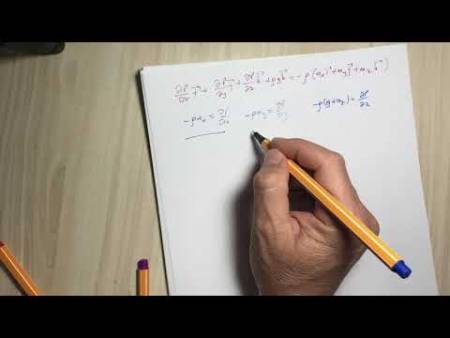 ∂P/∂x i⃗ + ∂P/∂y j⃗ + ∂P/∂z k⃗ + ρg k⃗ = -ρ(aₓ i⃗ + a_y j⃗ + a_z k⃗)
-ρaₓ = ∂P/∂x -ρa_y = ∂P/∂y -ρ(g+a_z) = ∂P/∂z